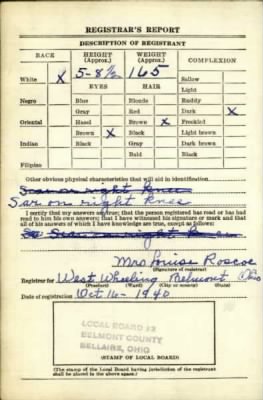 REGISTRAR'S REPORT
DESCRIPTION OF REGISTRANT
RACE HEIGHT (Approx.) WEIGHT (Approx.) COMPLEXION
White X 5-8½ 165 Sallow
EYES HAIR Light
Negro Blue Blonde Ruddy
Gray Red Dark X
Oriental Hazel Brown X Freckled
Brown X Black Light brown
Indian Black Gray Dark brown
Bald Black
Filipino
Other obvious physical characteristics that will aid in identification
Scar on right knee
Scar on right knee
I certify that my answers are true; that the person registered has read or has had
read to him his own answers; that I have witnessed his signature or mark and that
all of his answers of which I have knowledge are true, except as follows:
Scar on right
Mrs Louise Roscoe
(Signature of registrar)
Registrar for West Wheeling Belmont Ohio
(Precinct) (Ward) (City or county) (State)
Date of registration Oct 16 - 1940
LOCAL BOARD #2
BELMONT COUNTY
BELLAIRE, OHIO
(STAMP OF LOCAL BOARD)
(The stamp of the Local Board having jurisdiction of the registrant
shall be placed in the above space.)